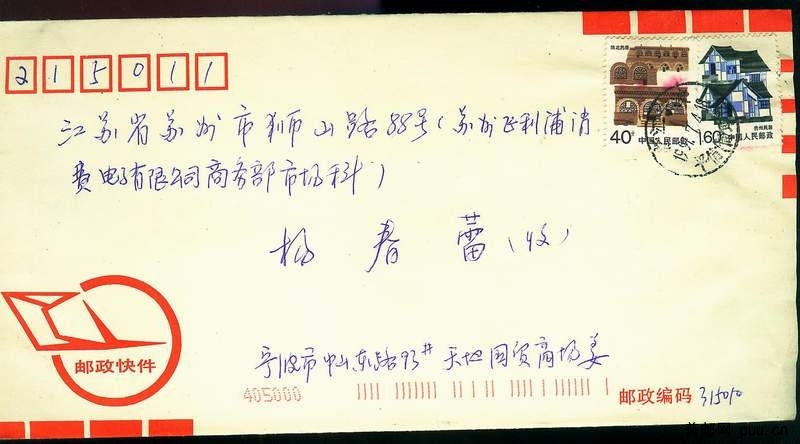 215011
江苏省苏州市狮山路88号(苏州飞利浦消
费电子有限公司商务部市场科)
杨春蕾(收)
陕北民居
40分 中国人民邮政
贵州民居
160 中国人民邮政
邮政快件
宁波市中山东路93# 天地国贸商场姜
405000
邮政编码 315010